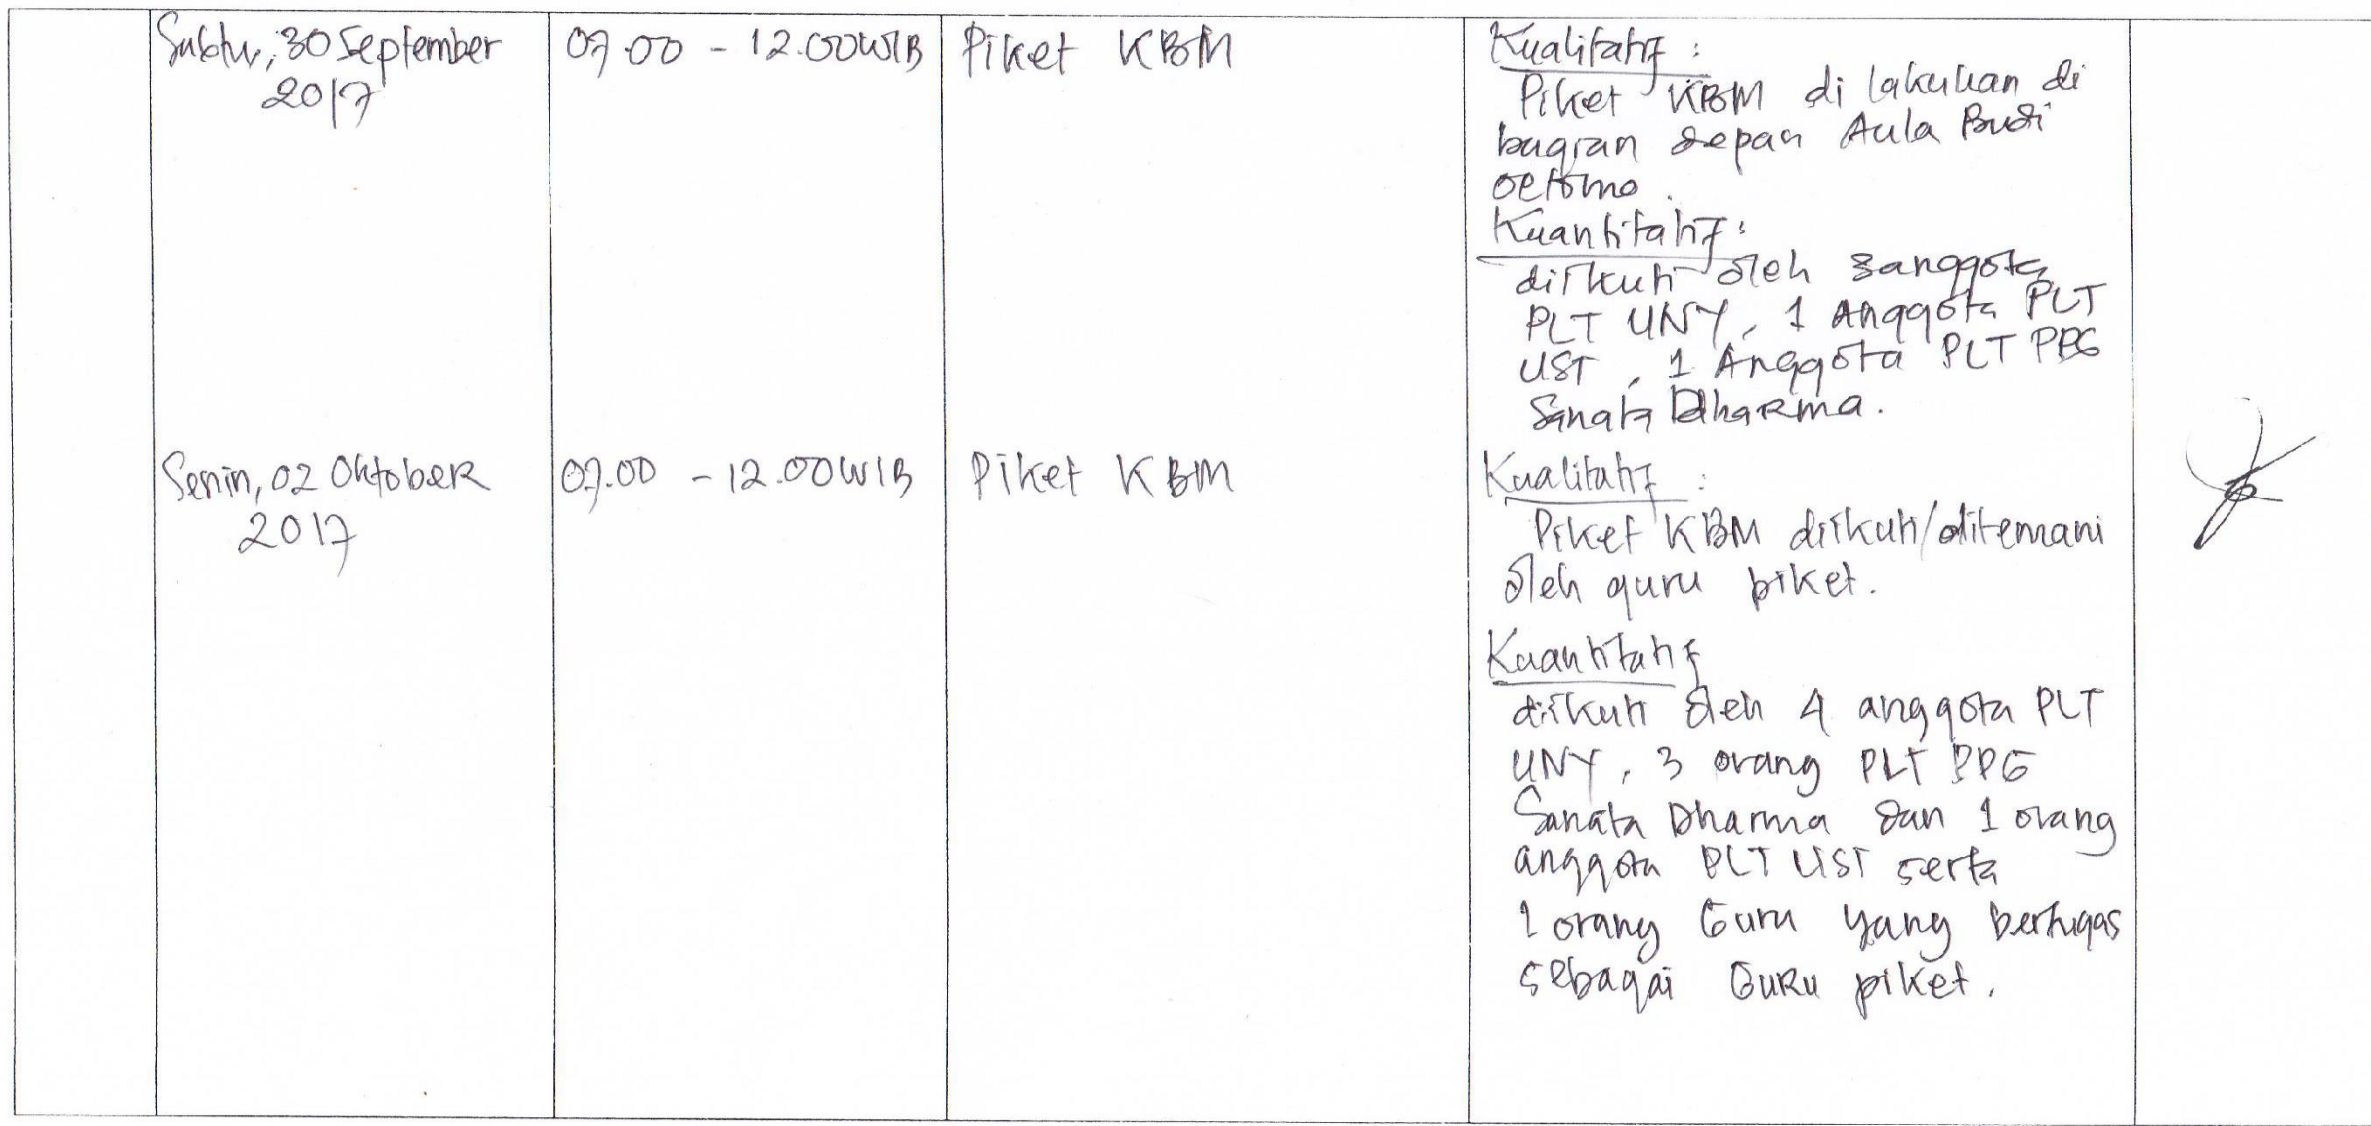 Sabtu, 30 September
2017
07.00 - 12.00 WIB
Piket KBM
Kualitatif :
Piket KBM di lakukan di
bagian depan Aula Budi
Oetomo.
Kuantitatif :
diikuti oleh 3 anggota
PLT UNY, 1 Anggota PLT
UST, 1 Anggota PLT PPG
Sanata Dharma.
Senin, 02 Oktober
2017
07.00 - 12.00 WIB
Piket KBM
Kualitatif :
Piket KBM diikuti/ditemani
oleh guru piket.
Kuantitatif
diikuti oleh 4 anggota PLT
UNY, 3 orang PLT PPG
Sanata Dharma dan 1 orang
anggota PLT UST serta
1 orang Guru yang bertugas
sebagai Guru piket.